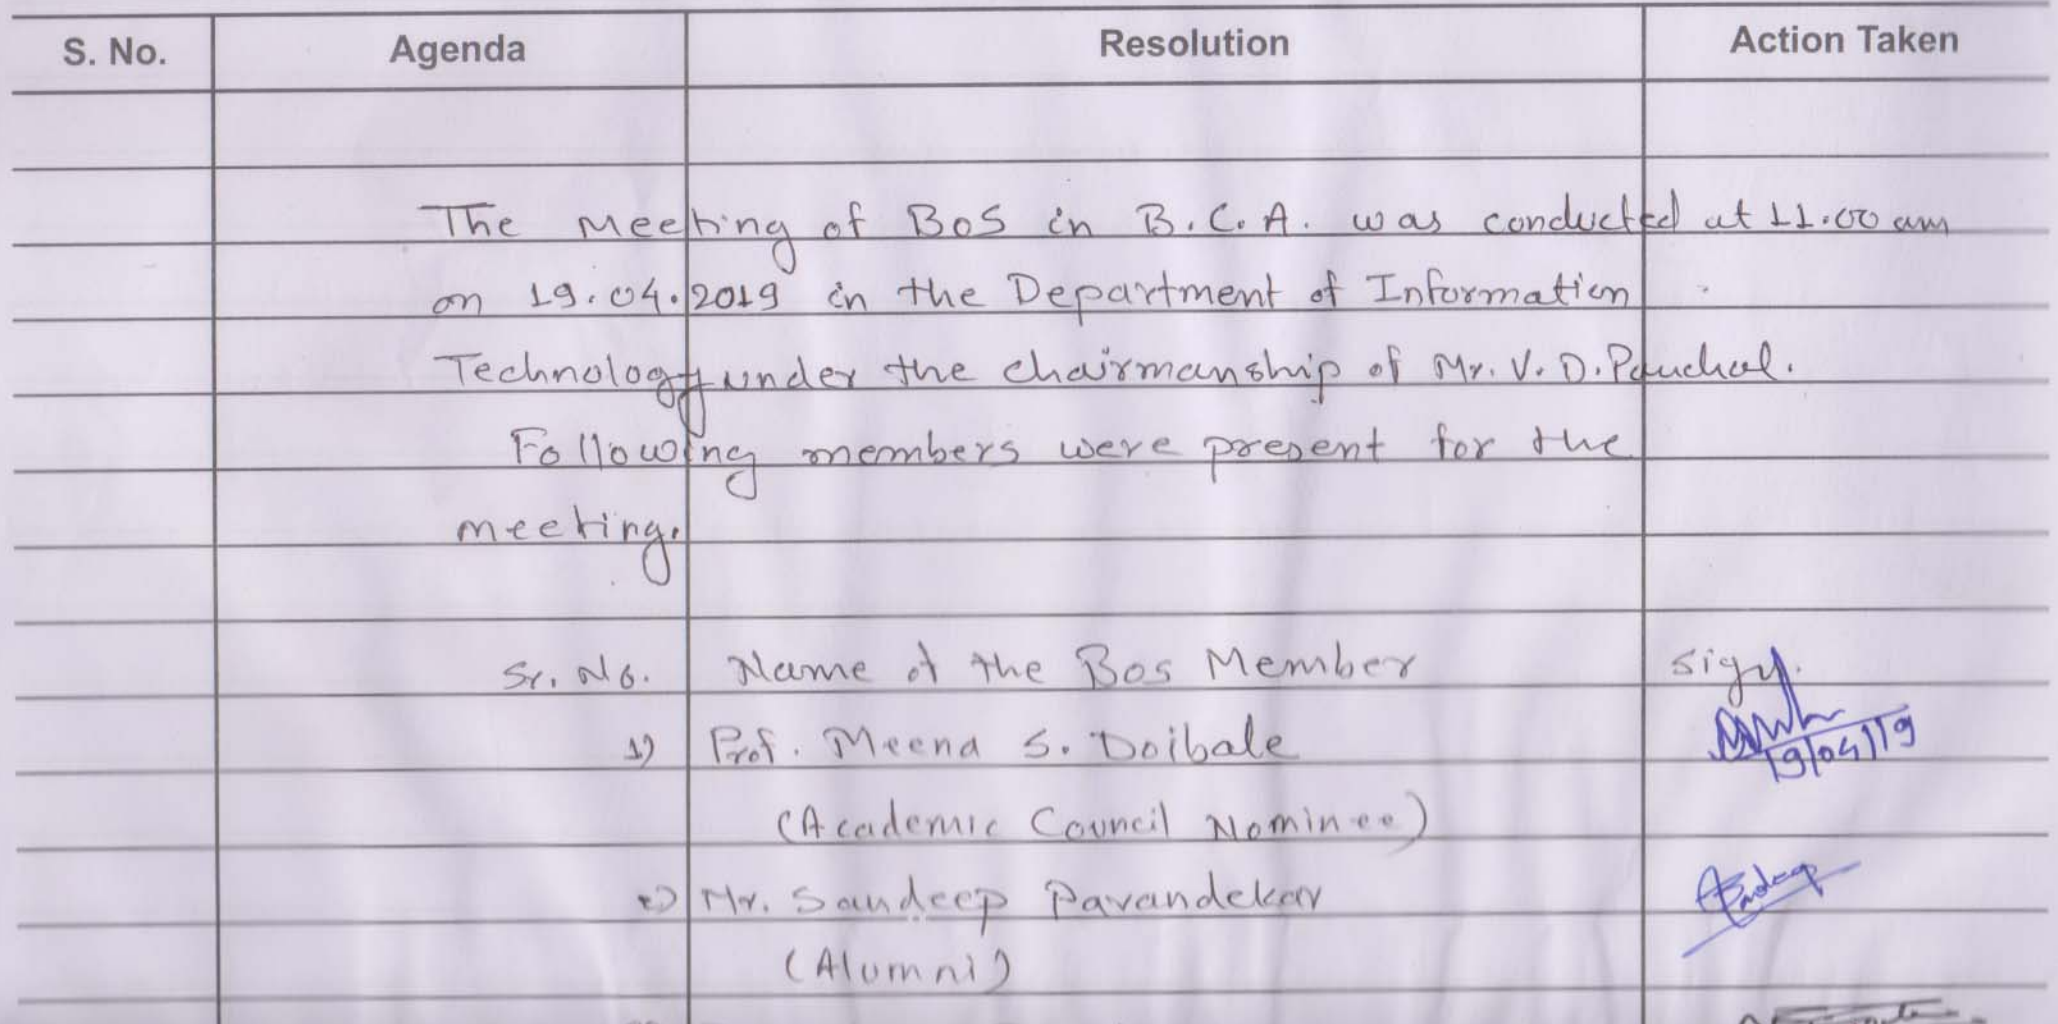 S. No. Agenda Resolution Action Taken
The Meeting of BoS in B.C.A. was conducted at 11.00 am
on 19.04.2019 in the Department of Information
Technology under the chairmanship of Mr. V. D. Panchal.
Following members were present for the
meeting.
Sr. No. Name of the Bos Member Sign.
1) Prof. Meena S. Doibale
19/04/19
(Academic Council Nominee)
2) Mr. Sandeep Pavandekar
(Alumni)